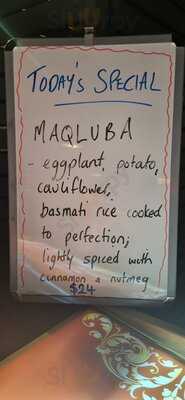 TODAY'S SPECIAL
MAQLUBA
- eggplant, potato,
cauliflower,
basmati rice cooked
to perfection;
lightly spiced with
cinnamon & nutmeg
$24